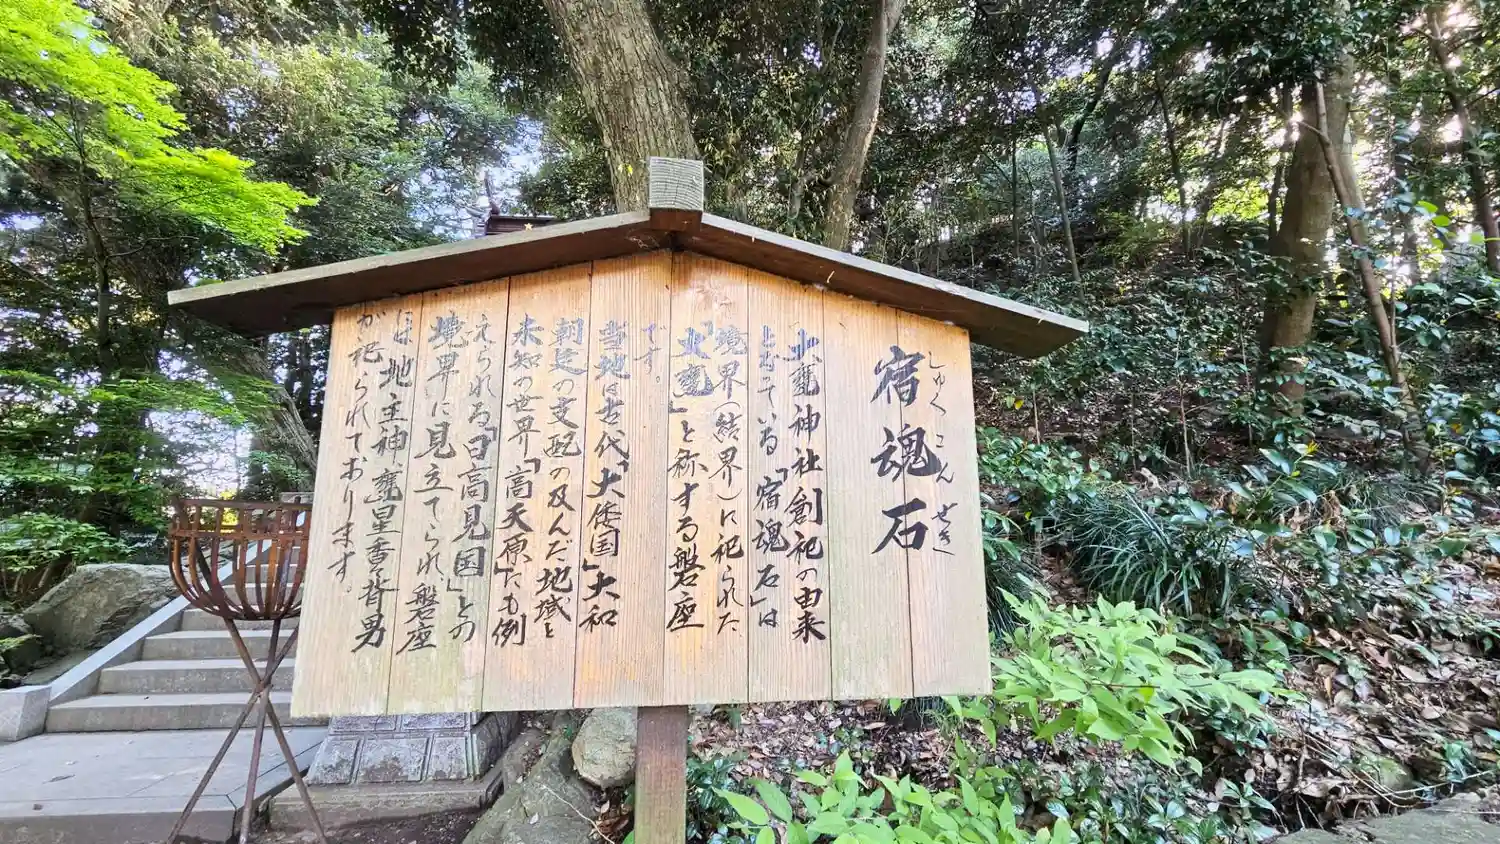 宿魂石
しゅくこんせき
大甕神社創祀の由来
となっている「宿魂石」は
境界(結界)に祀られた
「大甕」と称する磐座
です。
当地は古代「大倭国」大和
朝廷の支配の及んだ地域と
未知の世界「高天原」とも例
えられる「日高見国」との
境界に見立てられ、磐座
には地主神、甕星香背男
が祀られております。